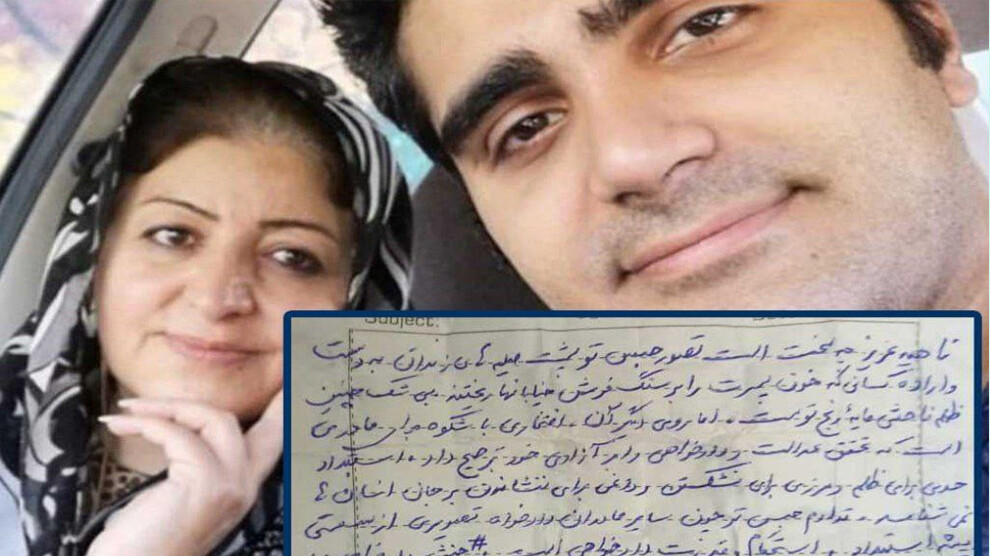 Subject:
ناهید عزیز چه سخت است تصور حبس تو پشت میله های زندان به دست
و اراده کسانی که خون پسرت را بر سنگ فرش خیابانها ریختند. بی شک چنین
ظلم فاحشی مایهٔ رنج توست، اما روی دیگر آن، افتخاری با شکوه برای مادری
است که تحقق عدالت و دادخواهی را بر آزادی خود ترجیح داد. استبداد
حدی برای ظلم و مرزی برای شکستن و داغی برای ننشاندن بر جان انسان ها
نمی شناسد. تداوم حبس تو چون سایر مادران دادخواه تصویری از
استبداد و استحکام قدرت دادخواهی است. #